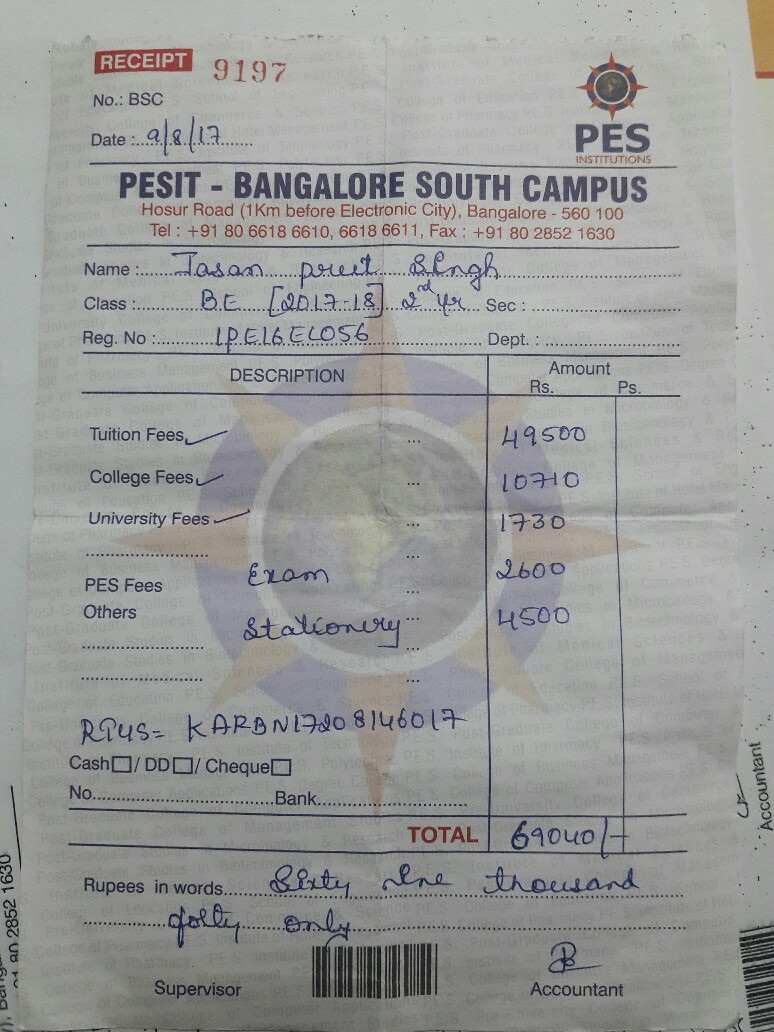 RECEIPT 9197
No.: BSC
Date : 9/8/17
PES
INSTITUTIONS
PESIT - BANGALORE SOUTH CAMPUS
Hosur Road (1Km before Electronic City), Bangalore - 560 100
Tel : +91 80 6618 6610, 6618 6611, Fax : +91 80 2852 1630
Name : Jasan preet Singh
Class : BE [2017-18] 2nd yr Sec :
Reg. No : 1PE16EC056 Dept. :
DESCRIPTION Amount
Rs. Ps.
Tuition Fees ... 49500
College Fees ... 10710
University Fees ... 1730
...
PES Fees Exam ... 2600
Others Stationery ... 4500
...
KARBN17208146017
Cash / DD / Cheque
No. Bank
TOTAL 69040/-
Rupees in words Sixty nine thousand
forty only
Supervisor Accountant
Accountant
80 2852 1630